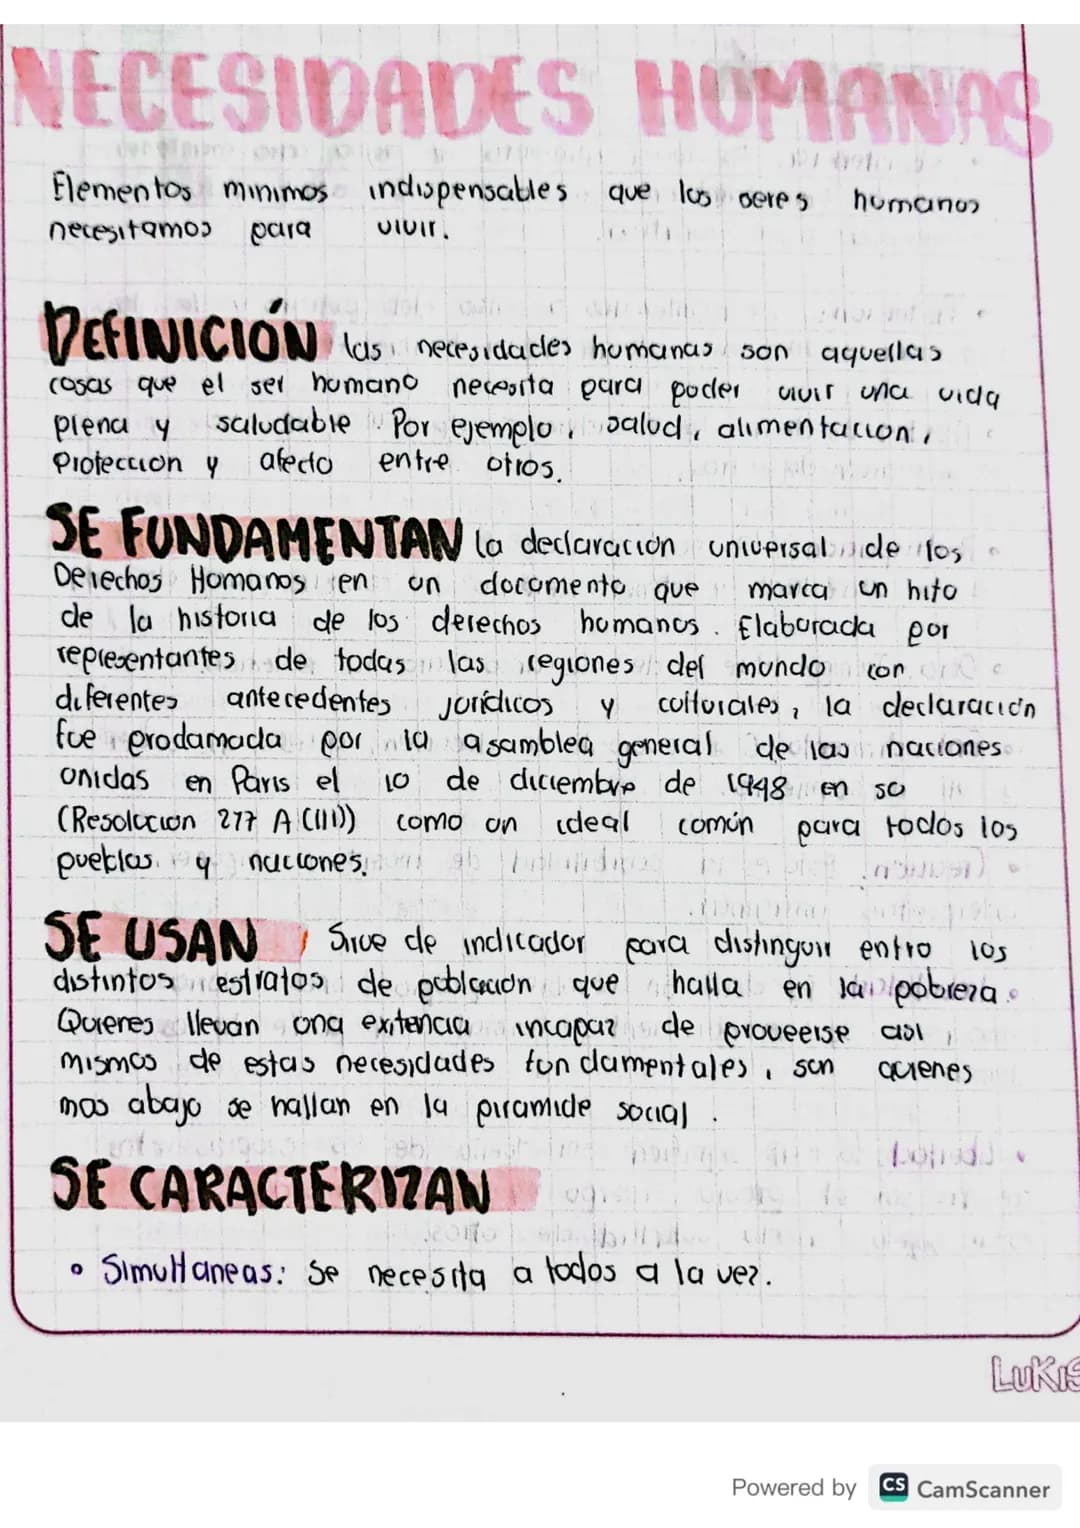 NECESIDADES HUMANAS
Elementos minimos indispensables que los seres humanos
necesitamos para vivir.
DEFINICIÓN las necesidades humanas son aquellas
cosas que el ser humano necesita para poder vivir una vida
plena y saludable. Por ejemplo, salud, alimentacion,
Protección y afecto entre otros.
SE FUNDAMENTAN la declaración universal de los
Derechos Humanos en un documento que marca un hito
de la historia de los derechos humanos. Elaborada por
representantes de todas las regiones del mundo con
diferentes antecedentes jurídicos y culturales, la declaración
fue prodamada por la asamblea general de las naciones
unidas en Paris el 10 de diciembre de 1948 en su
(Resolución 217 A (III)) como un ideal común para todos los
pueblos y naciones.
SE USAN Sirve de indicador para distinguir entro los
distintos estratos de población que halla en la pobreza.
Quienes llevan una exitencia incapaz de proveerse asi
mismos de estas necesidades fundamentales, son quienes
mas abajo se hallan en la piramide social.
SE CARACTERIZAN
• Simultaneas: Se necesita a todos a la vez.
LUKIS
Powered by CS CamScanner